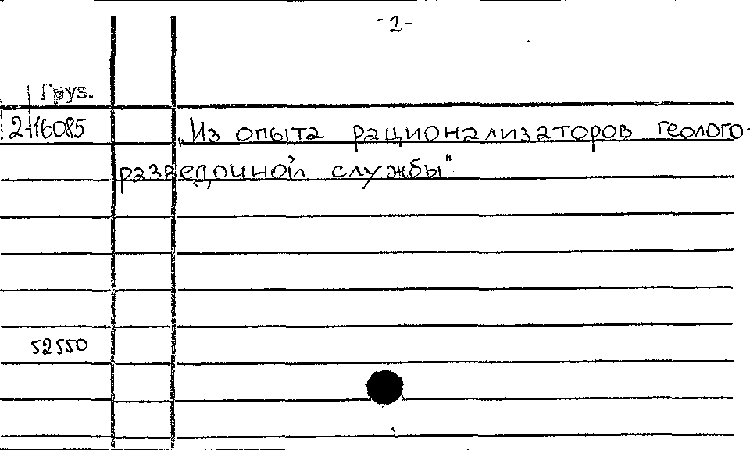 -2-
Груз.
2-16085 „Из опыта рационализаторов геолого-
разведочной службы"
52550